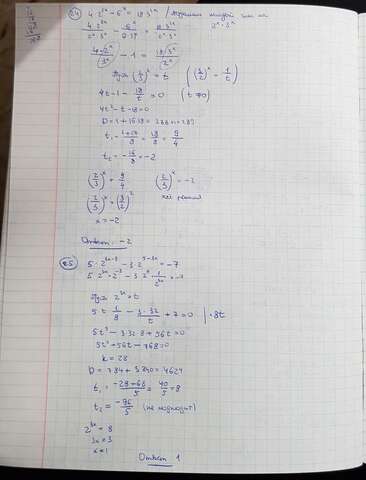 24) 4·2²ˣ - 6ˣ = 18·3²ˣ / 2ˣ·3ˣ
4·2²ˣ / 2ˣ·3ˣ - 6ˣ / 2ˣ·3ˣ = 18·3²ˣ / 2ˣ·3ˣ
4·2ˣ / 3ˣ - 1 = 18·3ˣ / 2ˣ
Пусть (2/3)ˣ = t ((3/2)ˣ - 1/t)
4t - 1 - 18/t = 0 (t ≠ 0)
4t² - t - 18 = 0
D = 1 + 16·18 = 288 + 1 = 289
t₁ = 1+17 / 8 = 18/8 = 9/4
t₂ = -16/8 = -2
(2/3)ˣ = 9/4 (2/3)ˣ = -2
(2/3)ˣ = (3/2)² нет решений
x = -2
Ответ: -2
25) 5·2³ˣ⁻³ - 3·2⁵⁻³ˣ = -7
5·2³ˣ·2⁻³ - 3·2⁵·1/2³ˣ = -7
Пусть 2³ˣ = t
5·t·1/8 - 3·32/t + 7 = 0 | ·8t
5t² - 3·32·8 + 56t = 0
5t² + 56t - 768 = 0
k = 28
D = 784 + 3840 = 4624
t₁ = -28+68 / 5 = 40/5 = 8
t₂ = -96/5 (не подходит)
2³ˣ = 8
3x = 3
x = 1
Ответ 1